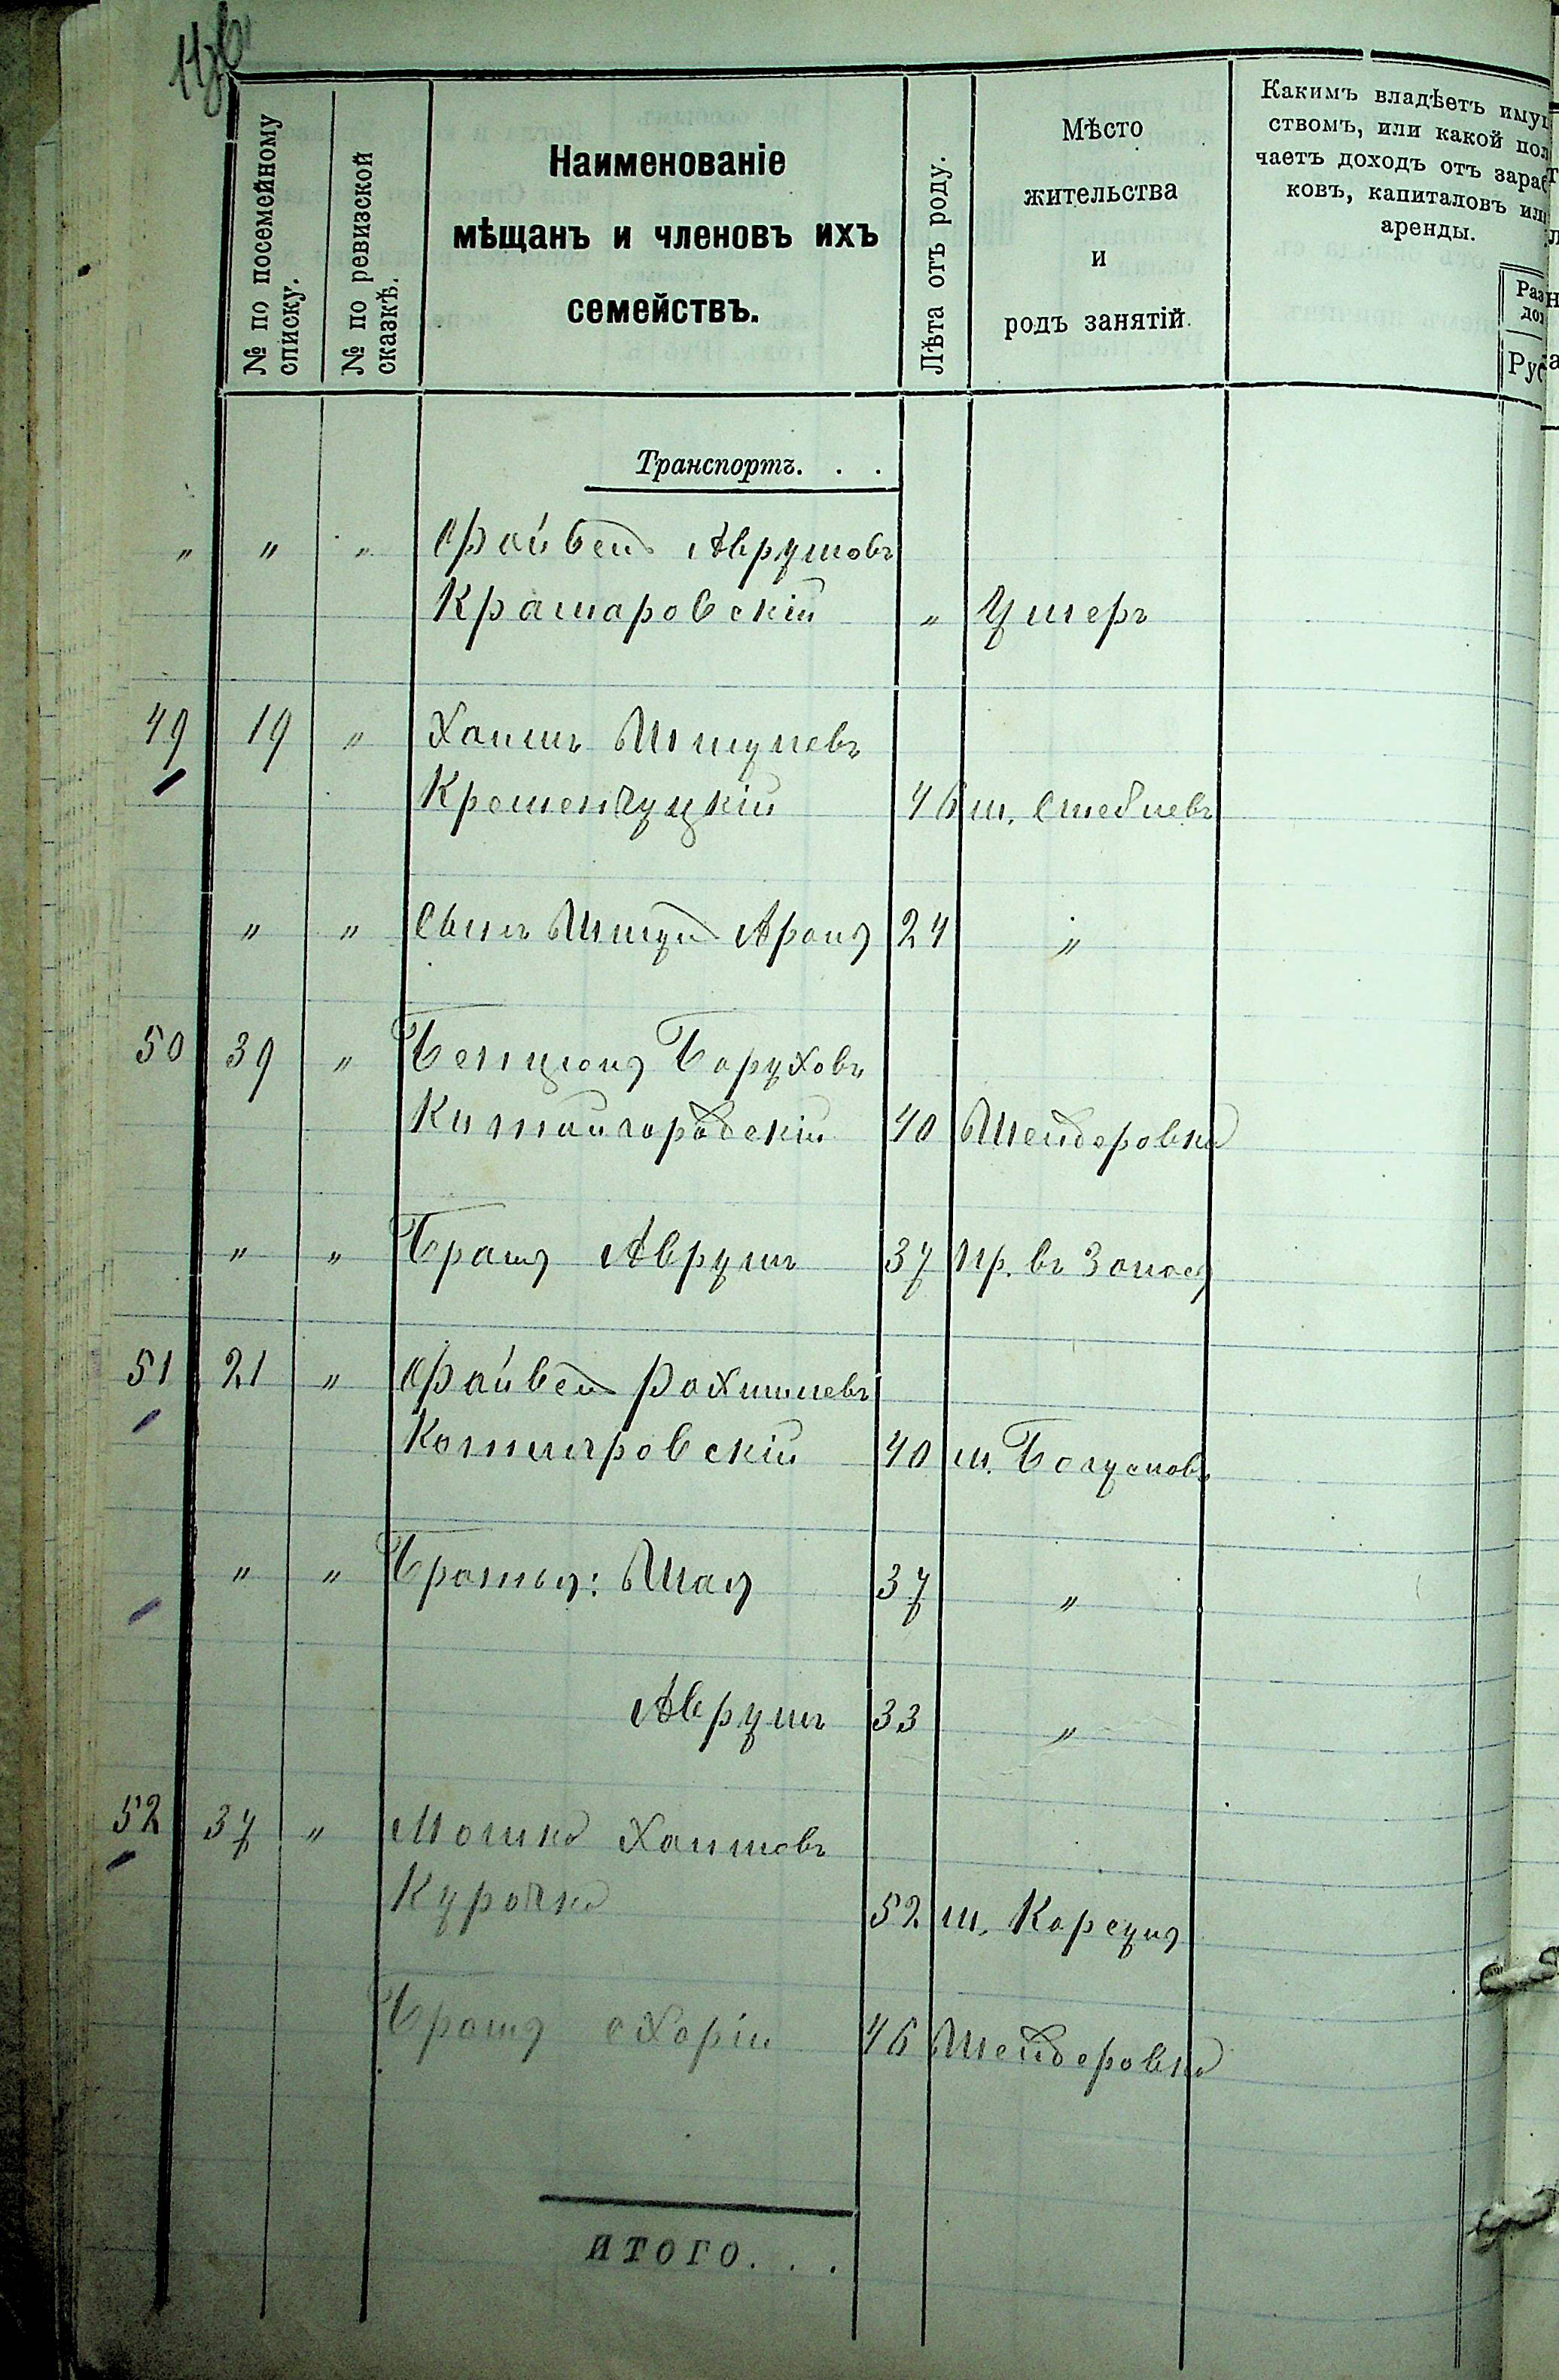 № по посемейному списку.
№ по ревизской сказкѣ.
Наименованіе
мѣщанъ и членовъ ихъ
семействъ.
Лѣта отъ роду.
Мѣсто
жительства
и
родъ занятій.
Какимъ владѣетъ имущ
ствомъ, или какой пол
чаетъ доходъ отъ зараб
ковъ, капиталовъ ил
аренды.
Раз
дох
Руб
Транспортъ. . .
" " " Файвель Аврумовъ
Крамаровскій " Умеръ
49 19 " Хаимъ Шмулевъ
Кременчуцкій 46 м. Стеблевъ
" " Сынъ Шмуль Аронъ 24 "
50 39 " Бенціонъ Баруховъ
Китайгородскій 40 Шендеровка
" " Братъ Аврумъ 37 пр. въ Запасъ
51 21 " Файвель Рахмилевъ
Котляровскій 40 м. Богуславъ
" " Братья: Шая 37 "
Аврумъ 33 "
52 37 " Мошко Хаимовъ
Курочка 52 м. Корсунъ
Братъ Схаріи 46 Шендеровка
ИТОГО. . .